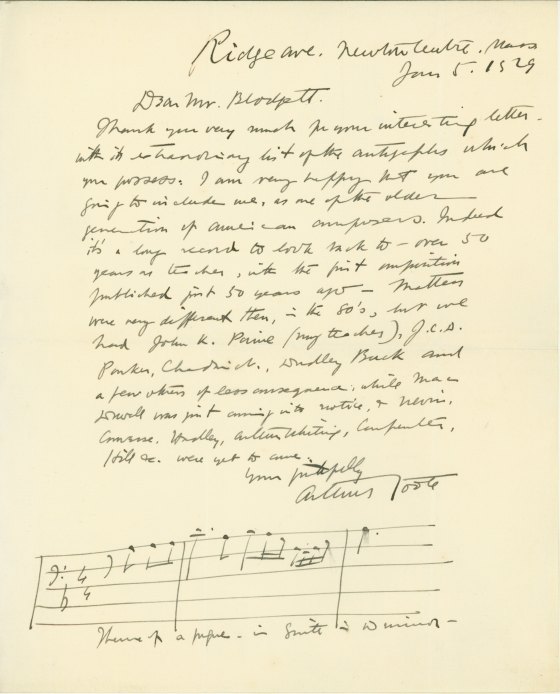 Ridge ave. Newton Centre. Mass
Jan 5. 1929
Dear Mr. Blodgett.
Thank you very much for your interesting letter -
with its extraordinary list of the autographs which
you possess. I am very happy that you are
going to include me, as one of the older
generation of american composers. Indeed
it's a long record to look back to - over 50
years as teacher, with the first composition
published just 50 years ago - Matters
were very different then, in the 80's, but we
had John K. Paine (my teacher), J.C.D.
Parker, Chadwick, Dudley Buck and
a few others of less consequence, while Mac
Dowell was just coming into notice, & Nevin,
Converse, Hadley, Arthur Whiting, Carpenter,
Hill &c. were yet to come.
Yours faithfully
Arthur Foote
Theme of a fugue - in Suite in D minor -